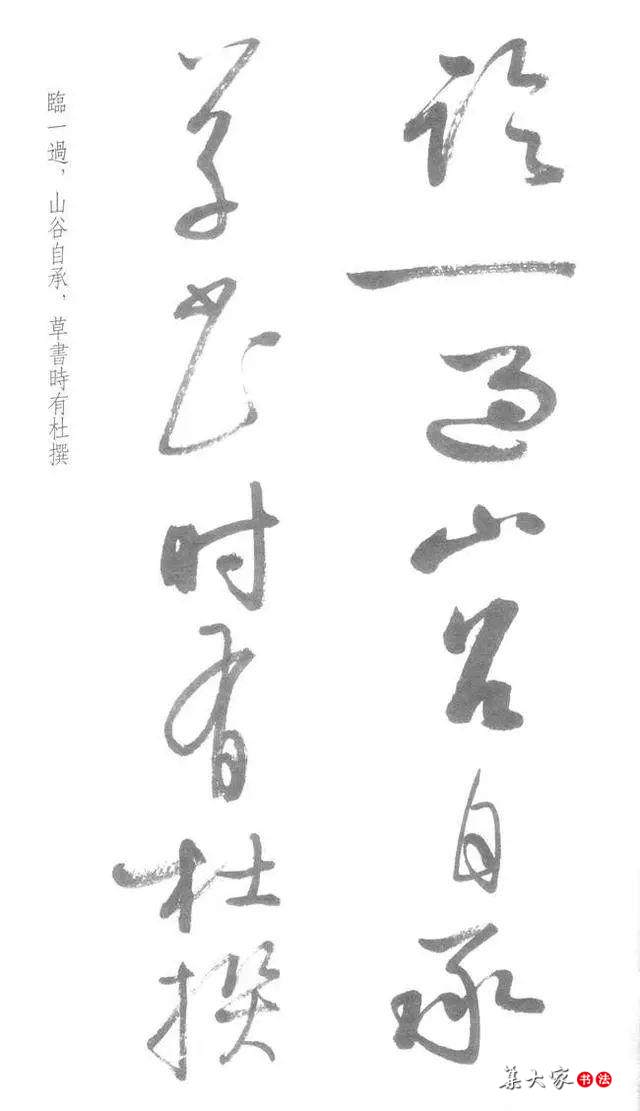 臨一過山谷自承
草書时有杜撰
臨一過，山谷自承，草書時有杜撰
集大家书法